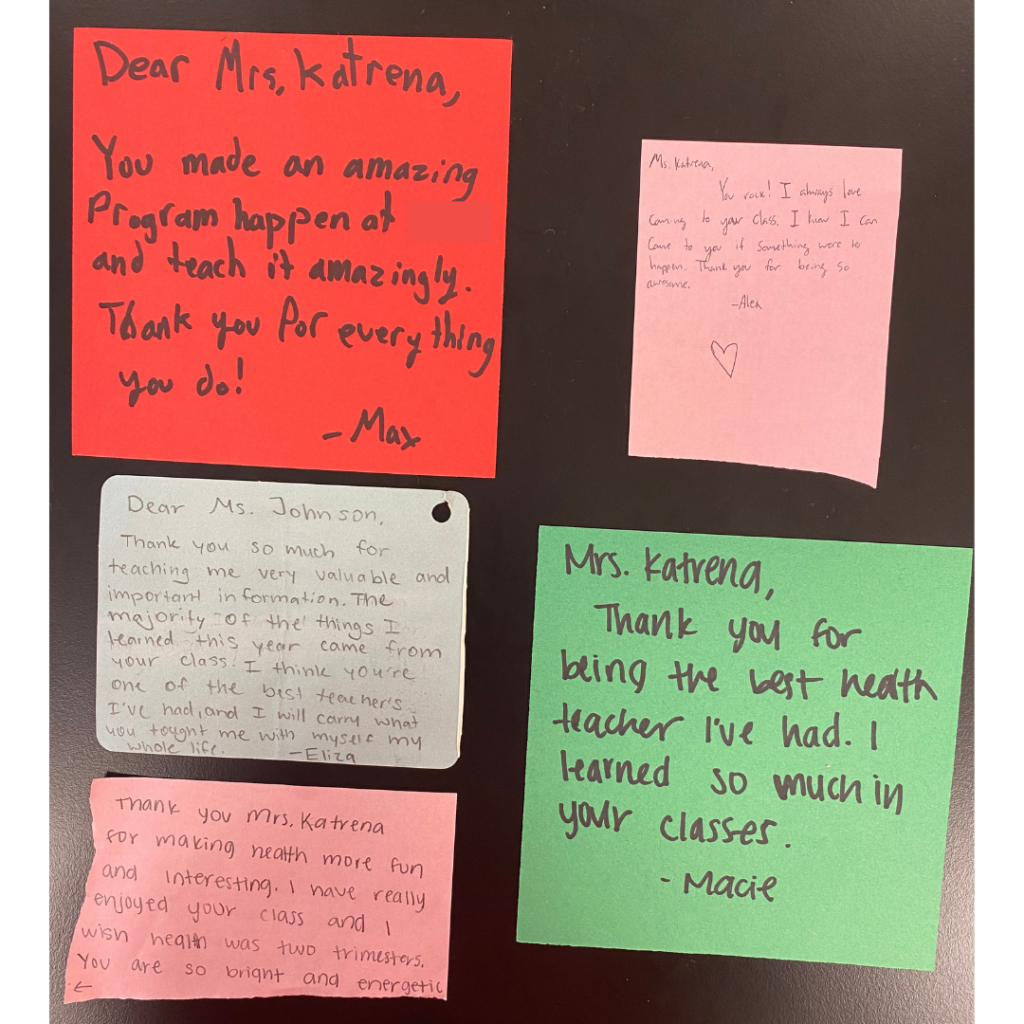 Dear Mrs, Katrena,
You made an amazing
Program happen at
and teach it amazingly.
Thank you For everything
you do!
- Max
Ms. Katrena,
You rock! I always love
coming to your class. I know I can
come to you if something were to
happen. Thank you for being so
awesome.
-Alex
Dear Ms. Johnson,
Thank you so much for
teaching me very valuable and
important information. The
majority of the things I
learned this year came from
your class. I think you're
one of the best teachers
I've had, and I will carry what
you tought me with myself my
whole life.
-Eliza
Mrs. Katrena,
Thank you for
being the best health
teacher I've had. I
learned so much in
your classes.
- Macie
Thank you Mrs. Katrena
for making health more fun
and interesting. I have really
enjoyed your class and I
wish health was two trimesters.
You are so bright and energetic
←